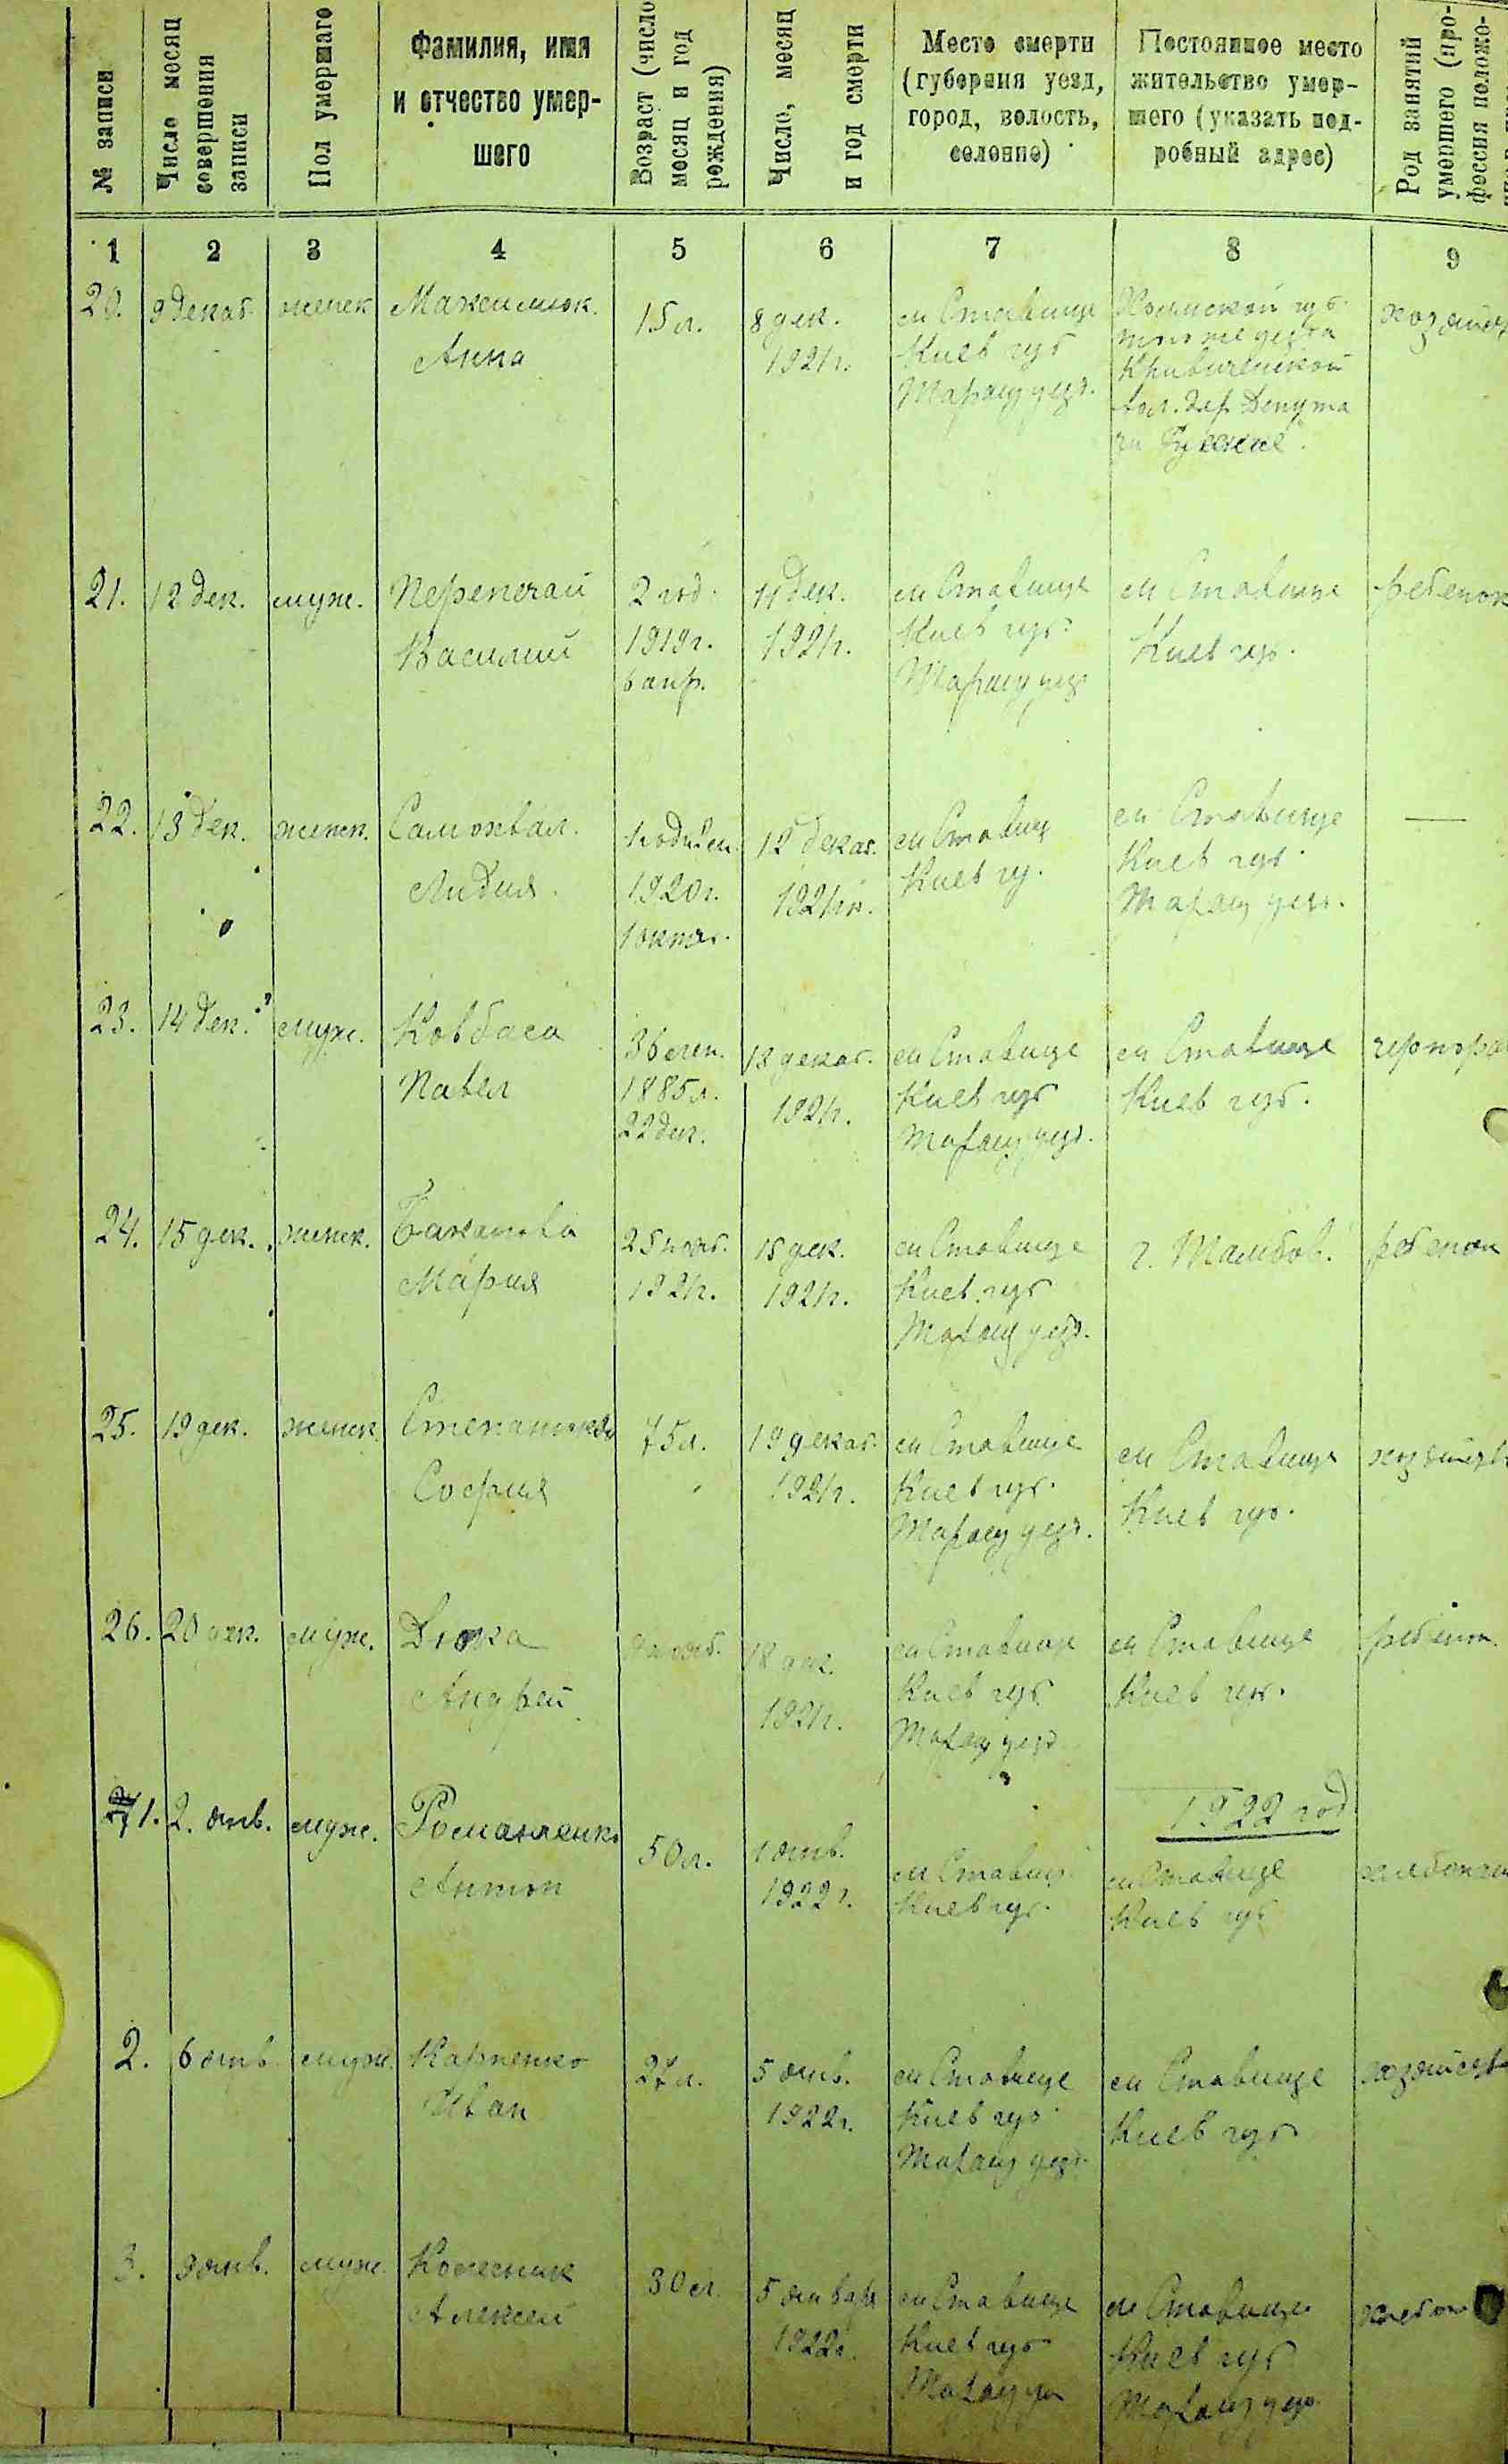 № записи
Число месяц
совершения
записи
Пол умершаго
Фамилия, имя
и отчество умер-
шего
Возраст (число
месяц и год
рождения)
Число, месяц
и год смерти
Место смерти
(губерния уезд,
город, волость,
селение)
Постоянное место
жительство умер-
шего (указать под-
робный адрес)
Род занятий
умершего (про-
фессия положе-
1 2 3 4 5 6 7 8 9
20. 9 декаб. женск
Максимюк.
Анна
15 л.
8 дек.
1921г.
м Ставище
Киев губ
Таращ уезд.
губ.
того же уезда
вол. дер.
21. 12 дек. муж.
Перепечай
Василий
2 год.
1919г.
6 апр.
11 дек.
1921г.
м Ставище
Киев губ.
Таращ уезд
м Ставище
Киев губ.
ребенок
22. 13 дек. женск.
Самохвал.
Лидия.
1920г.
1 октяб.
12 декаб.
1921г.
м Ставищ
Киев гу.
м Ставище
Киев губ.
Таращ уезд.
—
23. 14 дек. муж.
Ковбаса
Павел
36
1885г.
22 дек.
13 декаб.
1921г.
м Ставище
Киев губ
Таращ уезд.
м Ставище
Киев губ.
24. 15 дек. женск.
Баканова
Мария
25 нояб.
1921г.
15 дек.
1921г.
м Ставище
Киев. губ
Таращ уезд.
г. Тамбов.
ребенок
25. 19 дек. женск.
София
75 л.
19 декаб.
1921г.
м Ставище
Киев губ.
Таращ уезд.
м Ставище
Киев губ.
26. 20 дек. муж.
Андрей
18 дек.
1921г.
м Ставище
Киев губ
Таращ уезд
м Ставище
Киев губ.
ребенок
1922 год
1. 2. янв. муж.
Романченко
Антон
50 л.
1 янв.
1922 г.
м Ставищ
Киев губ.
м Ставище
Киев губ
2. 6 янв. муж.
Карпенко
Иван
27 л.
5 янв.
1922г.
м Ставище
Киев губ.
Таращ уезд.
м Ставище
Киев губ
3. 9 янв. муж.
Колесник
Алексей
30 л.
5 января
1922г.
м Ставище
Киев губ
Таращ уез
м Ставище
Киев губ
Таращ уезд.